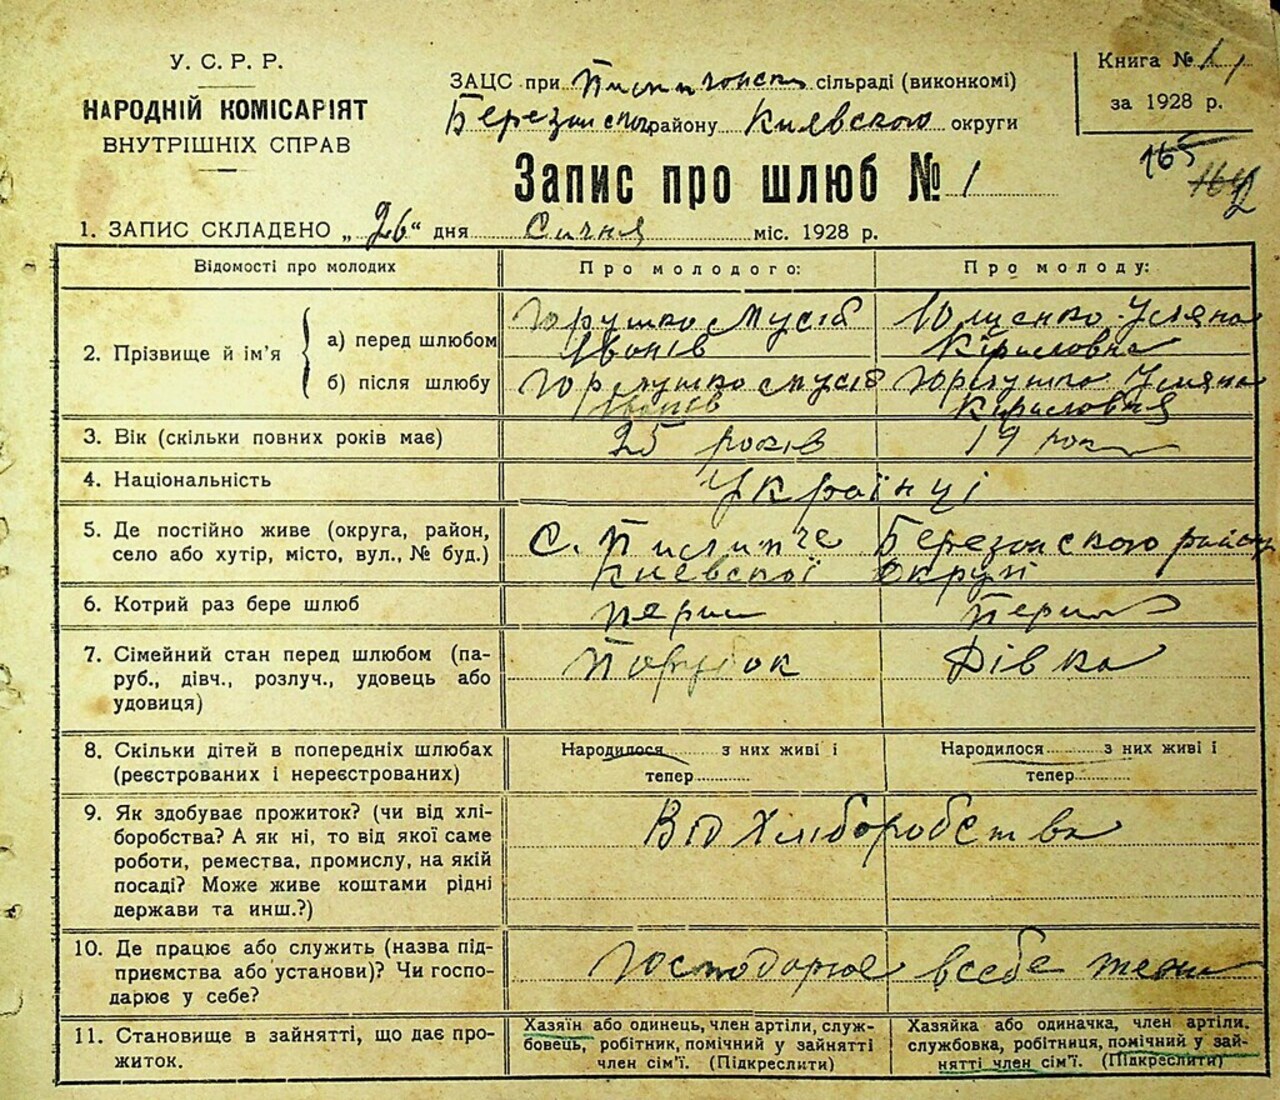 У. С. Р. Р.
НАРОДНІЙ КОМІСАРІЯТ
ВНУТРІШНІХ СПРАВ
ЗАЦС при сільраді (виконкомі)
Березанського району Киевского округи
Книга № 1
за 1928 р.
165
Запис про шлюб № 1
1. ЗАПИС СКЛАДЕНО „26“ дня Сичня міс. 1928 р.
Відомості про молодих
Про молодого:
Про молоду:
2. Прізвище й ім'я
а) перед шлюбом
Мусій
Іванів
Ющенко Уляна
Кириловна
б) після шлюбу
Мусій
Іванів
Уляна
Кириловна
3. Вік (скільки повних років має)
25 років
19 рок
4. Національність
Українці
5. Де постійно живе (округа, район,
село або хутір, місто, вул., № буд.)
С. Березанского району
Киевскої округі
6. Котрий раз бере шлюб
перш
Перш
7. Сімейний стан перед шлюбом (па-
руб., дівч., розлуч., удовець або
удовиця)
Парубок
Дівка
8. Скільки дітей в попередніх шлюбах
(реєстрованих і нереєстрованих)
Народилося з них живі і
тепер
Народилося з них живі і
тепер
9. Як здобуває прожиток? (чи від хлі-
боробства? А як ні, то від якої саме
роботи, ремества, промислу, на якій
посаді? Може живе коштами рідні
держави та инш.?)
Від Хліборобства
10. Де працює або служить (назва під-
приємства або установи)? Чи госпо-
дарює у себе?
Господарює всебе
11. Становище в зайнятті, що дає про-
житок.
Хазяїн або одинець, член артілі, служ-
бовець, робітник, помічний у зайнятті
член сім'ї. (Підкреслити)
Хазяйка або одиначка, член артіли.
службовка, робітниця, помічний у зай-
нятті член сім'ї. (Підкреслити)